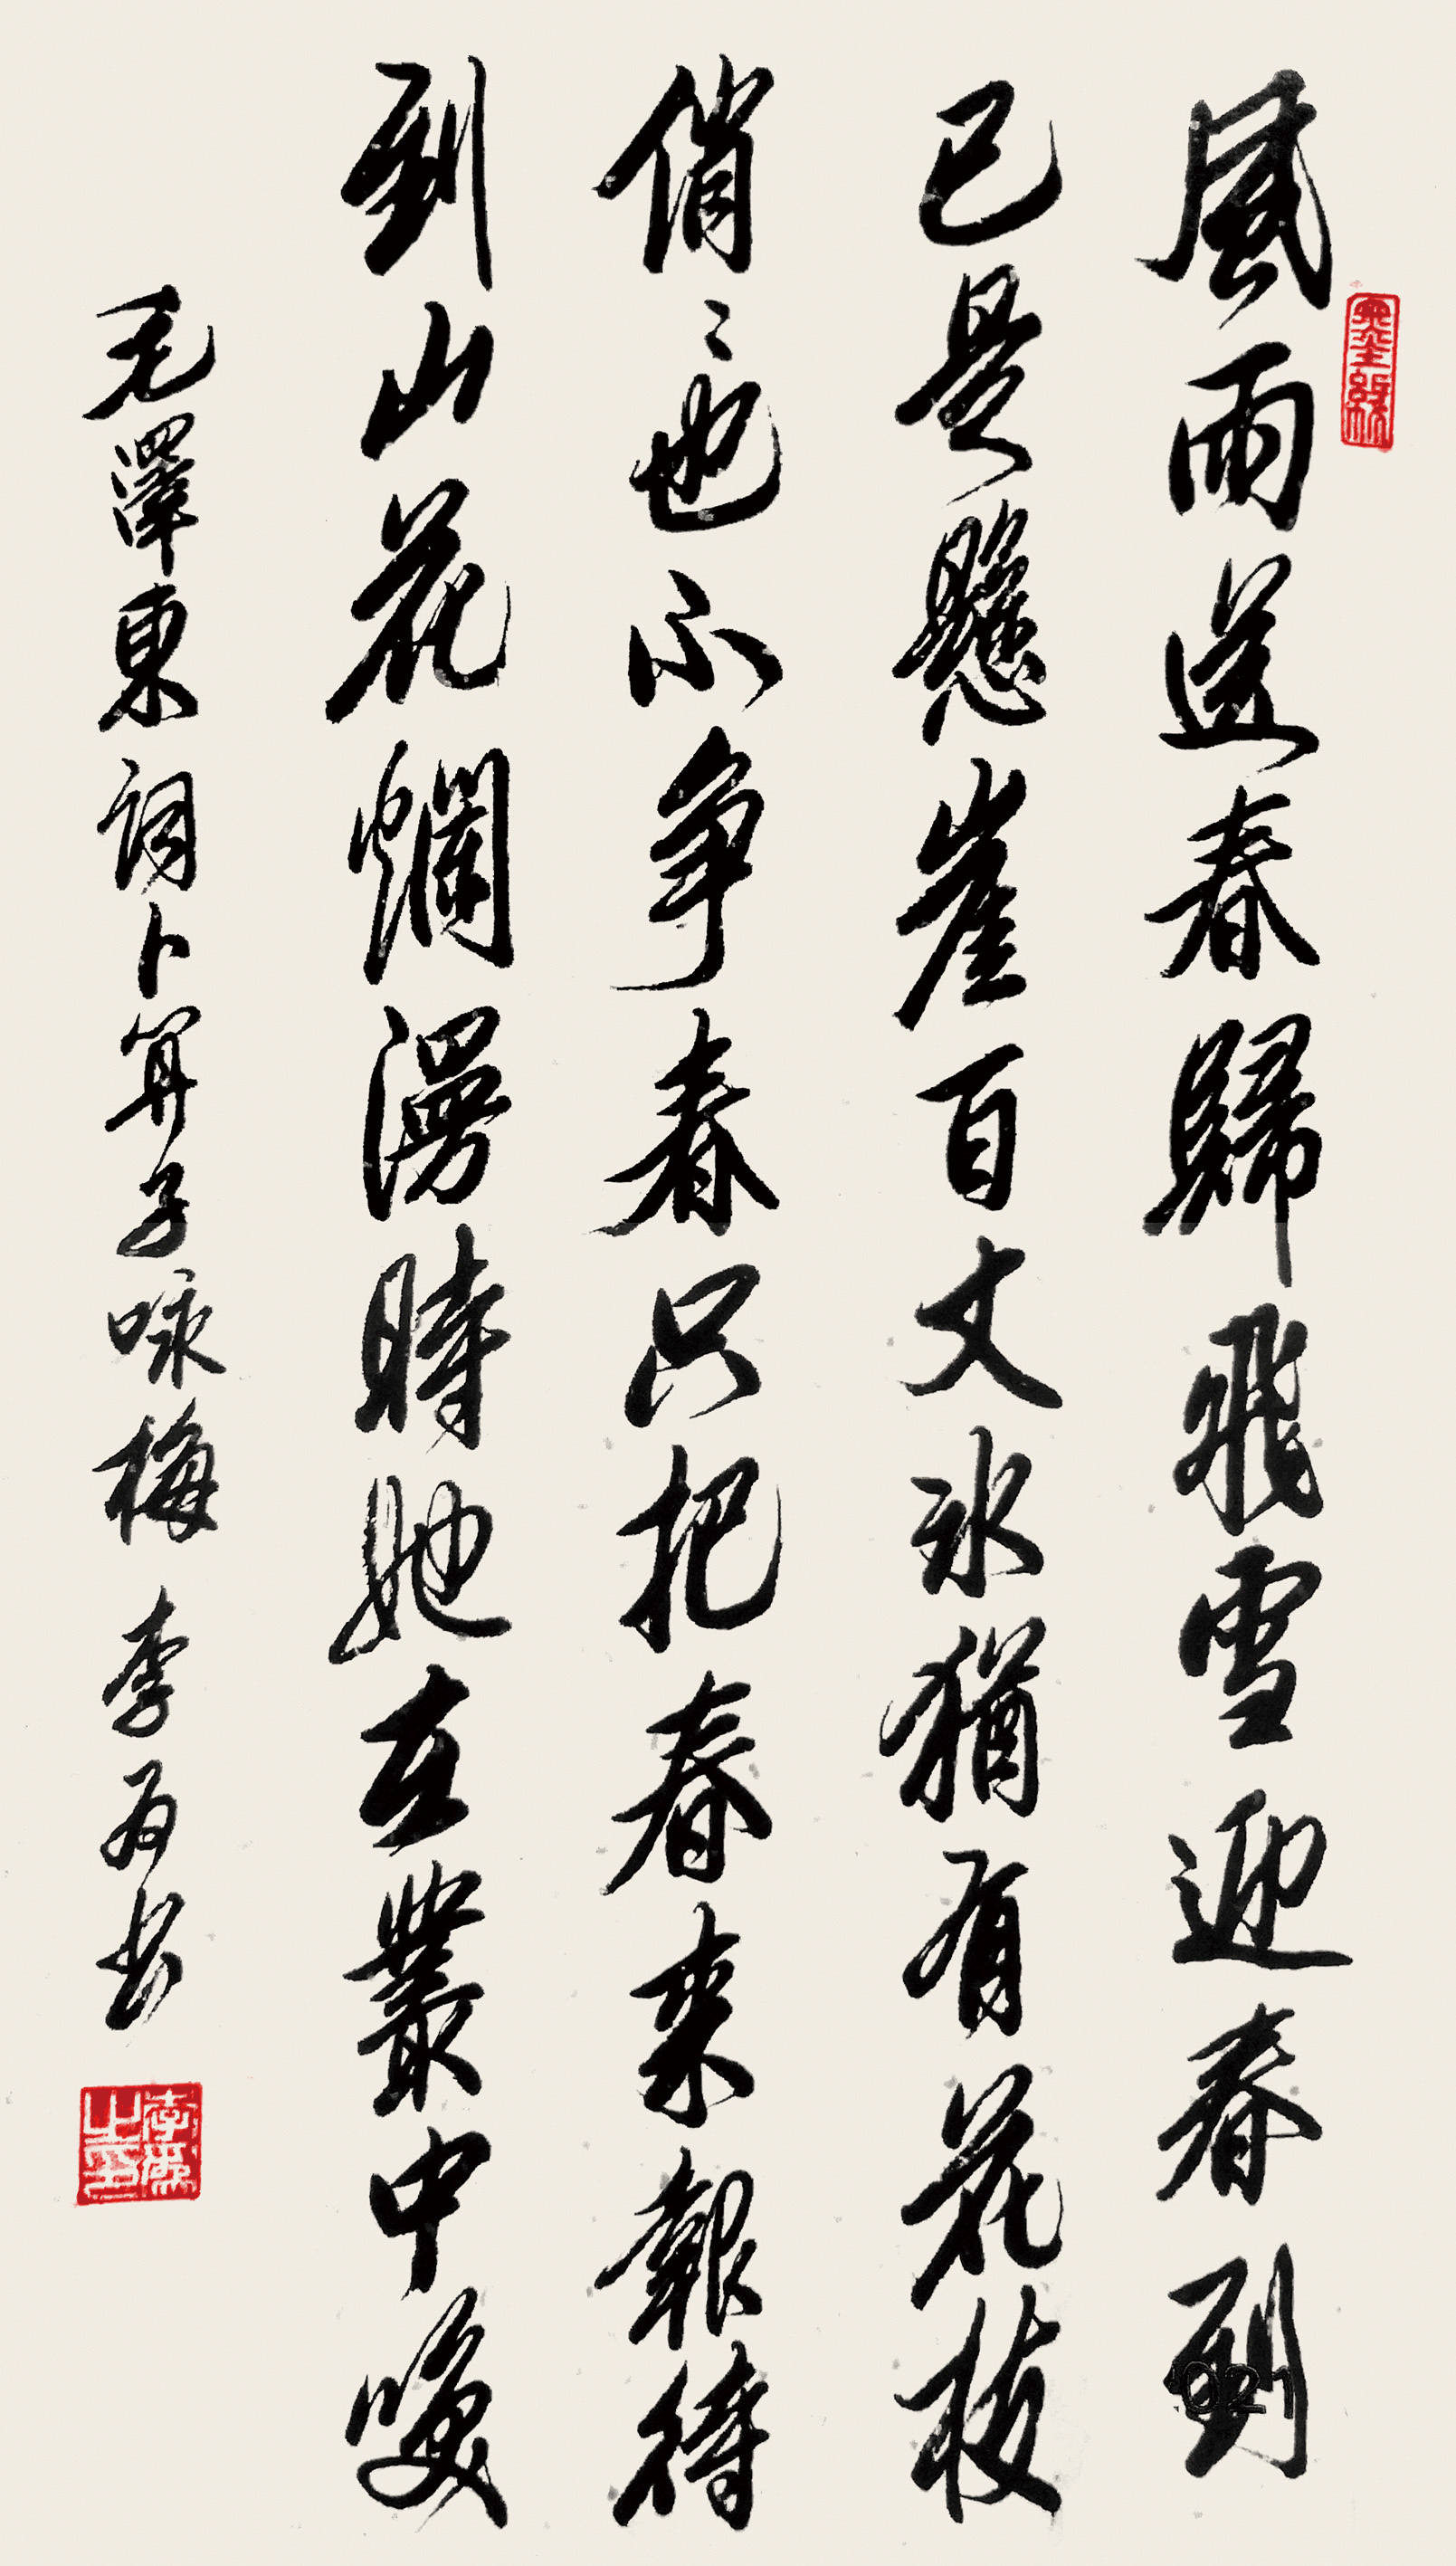 風雨送春歸飛雪迎春到
已是懸崖百丈冰猶有花枝
俏〻也不争春只把春来報待
到山花爛漫時她在叢中咲
毛澤東詞卜算子咏梅 李为书
李為之印